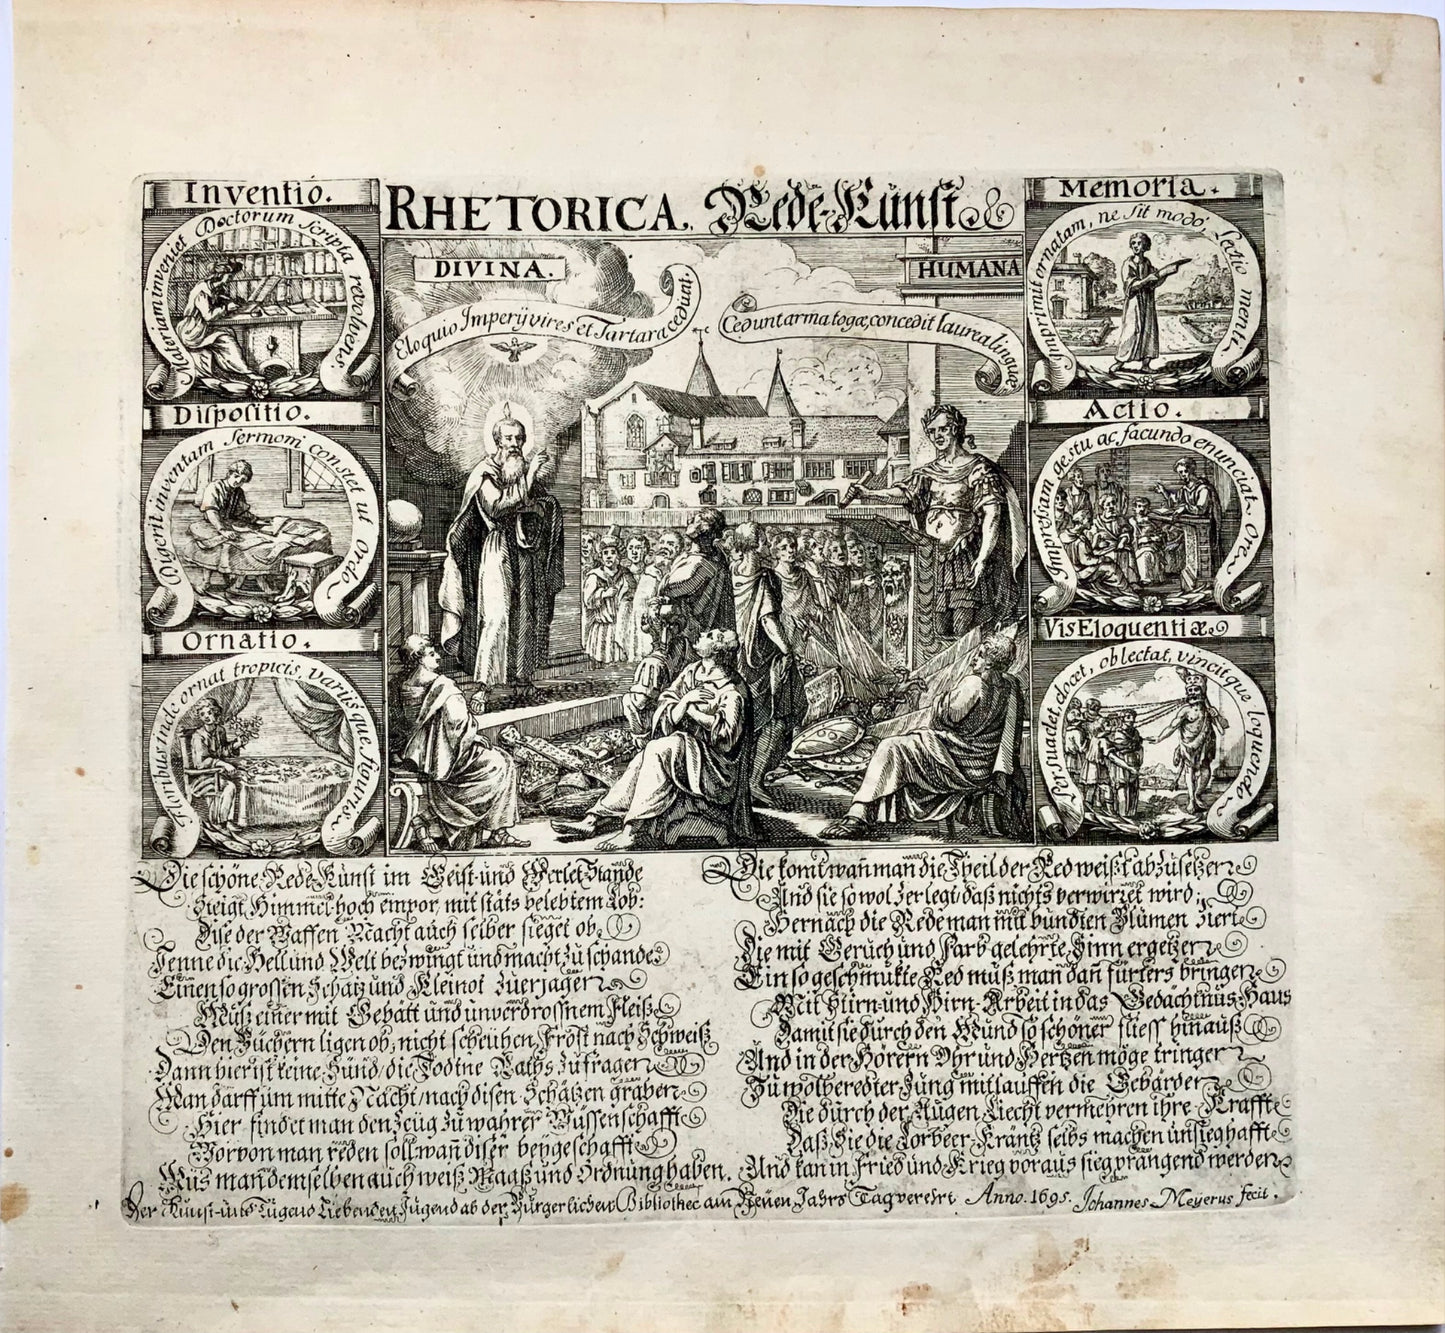 RHETORICA. Rede-Kunst
Inventio.
Materiam inveniet Doctorum scripta revolvens.
Dispositio.
Digerit inventam sermoni constet ut Ordo
Ornatio.
Floribus inde ornat tropicis, varijsque figuris.
DIVINA.
Eloquio Imperij vires et Tartara cedunt.
HUMANA
Cedunt arma togæ, concedit laurea linguæ
Memoria.
Imprimit ornatam, ne sit modo, Lectio menti.
Actio.
Impressam gestu ac facundo enunciat Ore.
Vis Eloquentiæ
Persuadet, docet, oblectat, vincitque loquendo
Die schöne Rede-Kunst im Geist- und Werlet-Stande
Steigt Himmel-hoch empor, mit stäts belebtem Lob:
Dise der Waffen Macht auch selber sieget ob,
Jenne die Hell und Welt bezwingt und macht zu schande
Einen so grossen Schatz und Kleinot zuerjagen
Muß einer mit Gebätt und unverdrossnem Fleiß
Den Büchern ligen ob, nicht scheühen, Fröst nach Schweiß
Dann hier ist keine Sünd, die Todtne Raths zu fragen
Man darff um mitte Nacht, nach disen Schätzen graben
Hier findet man den zeüg zu wahrer Wüssenschafft
Worvon man reden soll wañ diser beygeschafft
Mus man demselben auch weiß Maaß und Ordnung haben.
Die komt wañ man die Theil der Red weißt abzusetzen
Und sie so wol zerlegt daß nichts verwirret wird;
Hernach die Rede man mit bundten Blumen ziert
Die mit Geruch und Farb gelehrte Sinn ergetzen
Ein so geschmukte Red muß man dañ fürters bringen
Mit Hirn- und Hirn-Arbeit in das Gedächtnus-Haus
Damit sie durch den Mund so schöner fliess hinauß
Und in der Hörern Ohr und Hertzen möge tringen
Zu wolberedter Zung mit lauffen die Gebärden
Die durch der Augen Liecht vermehren ihre Krafft
Daß Sie die Lorbeer-Kräntz selbs machen unsieghafft
Und kan in Fried und Krieg voraus sieg prangend werden
Der Kunst- und Tugend Liebenden Jugend ab der Burgerlichen Bibliothec am Neuen Jahrs Tag verehrt Anno. 1695. Johannes Meyerus fecit.